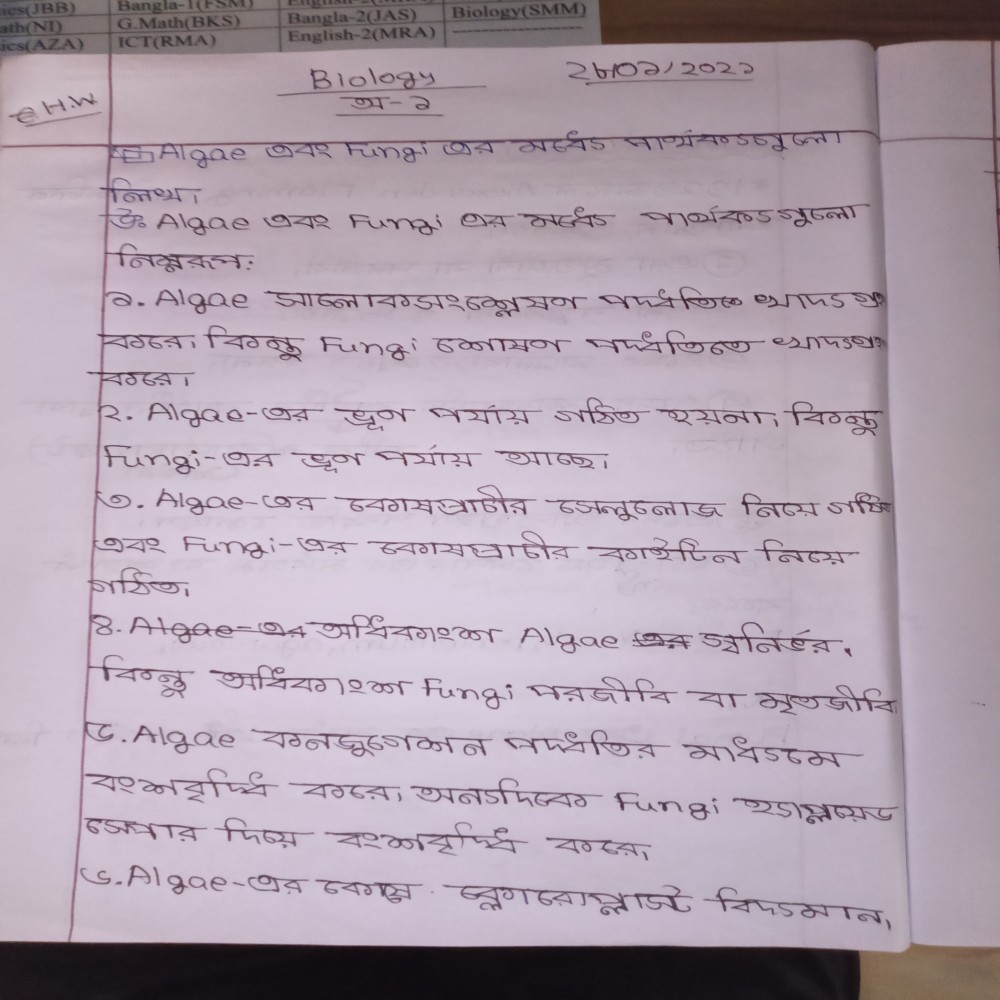 ics(JBB) Bangla-1(FSM)
ath(NI) G.Math(BKS) Bangla-2(JAS) Biology(SMM)
ics(AZA) ICT(RMA) English-2(MRA)
Biology ২৮/০৯/২০২১
H.W অ-১
Algae এবং Fungi এর মধ্যে পার্থক্যগুলো
লিখ।
উঃ Algae এবং Fungi এর মধ্যে পার্থক্যগুলো
নিম্নরূপ:
১. Algae সালোকসংশ্লেষণ পদ্ধতিতে খাদ্য
করে। কিন্তু Fungi শোষণ পদ্ধতিতে খাদ্য
করে।
২. Algae-এর ভ্রূণ পর্যায় গঠিত হয়না। কিন্তু
Fungi-এর ভ্রূণ পর্যায় আছে।
৩. Algae-এর কোষপ্রাচীর সেলুলোজ নিয়ে গঠিত
এবং Fungi-এর কোষপ্রাচীর কাইটিন নিয়ে
গঠিত।
৪. Algae-এর অধিকাংশ Algae এর স্বনির্ভর।
কিন্তু অধিকাংশ Fungi পরজীবি বা মৃতজীবি
৫. Algae কনজুগেশন পদ্ধতির মাধ্যমে
বংশবৃদ্ধি করে। অন্যদিকে Fungi হ্যাপ্লয়েড
স্পোর দিয়ে বংশবৃদ্ধি করে।
৬. Algae-এর কোষে ক্লোরোপ্লাস্ট বিদ্যমান।